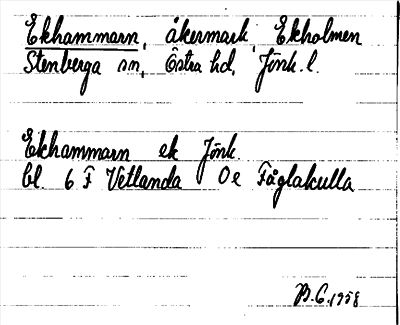 Ekhammarn, åkermark, Ekholmen
Stenberga sn, Östra hd, Jönk. l.
Ekhammarn ek Jönk.
bl. 6 F Vetlanda Oe Fåglakulla
B.G. 1958